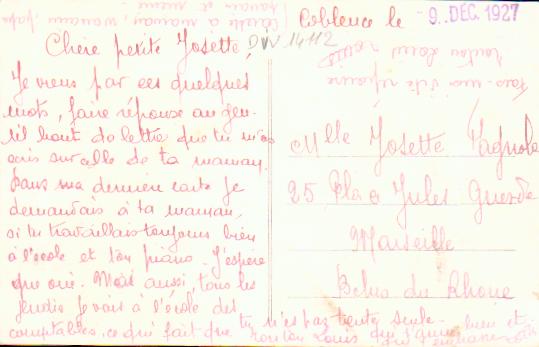 Coblence le 9. DEC. 1927
DVV 14112
Chère petite Josette,
Je viens par ces quelques
mots, faire réponse au gen-
til bout de lettre que tu m'as
écris sur celle de ta maman.
Dans ma dernière carte je
demandais à ta maman,
si tu travaillais toujours bien
à l'école et ton piano. J'espère
que oui. Moi aussi, tous les
jeudis je vais à l'école des
comptables, ce qui fait que tu n'es pas toute seule.
Tonton Louis qui t'aime bien et
Fais-moi vite réponse
tonton Louis
maman, maman
Mlle Josette
25 Place Jules Guesde
Marseille
Bches du Rhône